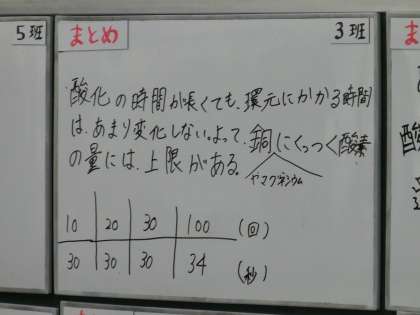 5班
まとめ
3班
酸化の時間が長くても、還元にかかる時間
は、あまり変化しない。よって、銅にくっつく酸素
の量には、上限がある。
やマグネシウム
10 20 30 100 (回)
30 30 30 34 (秒)
ま
酸